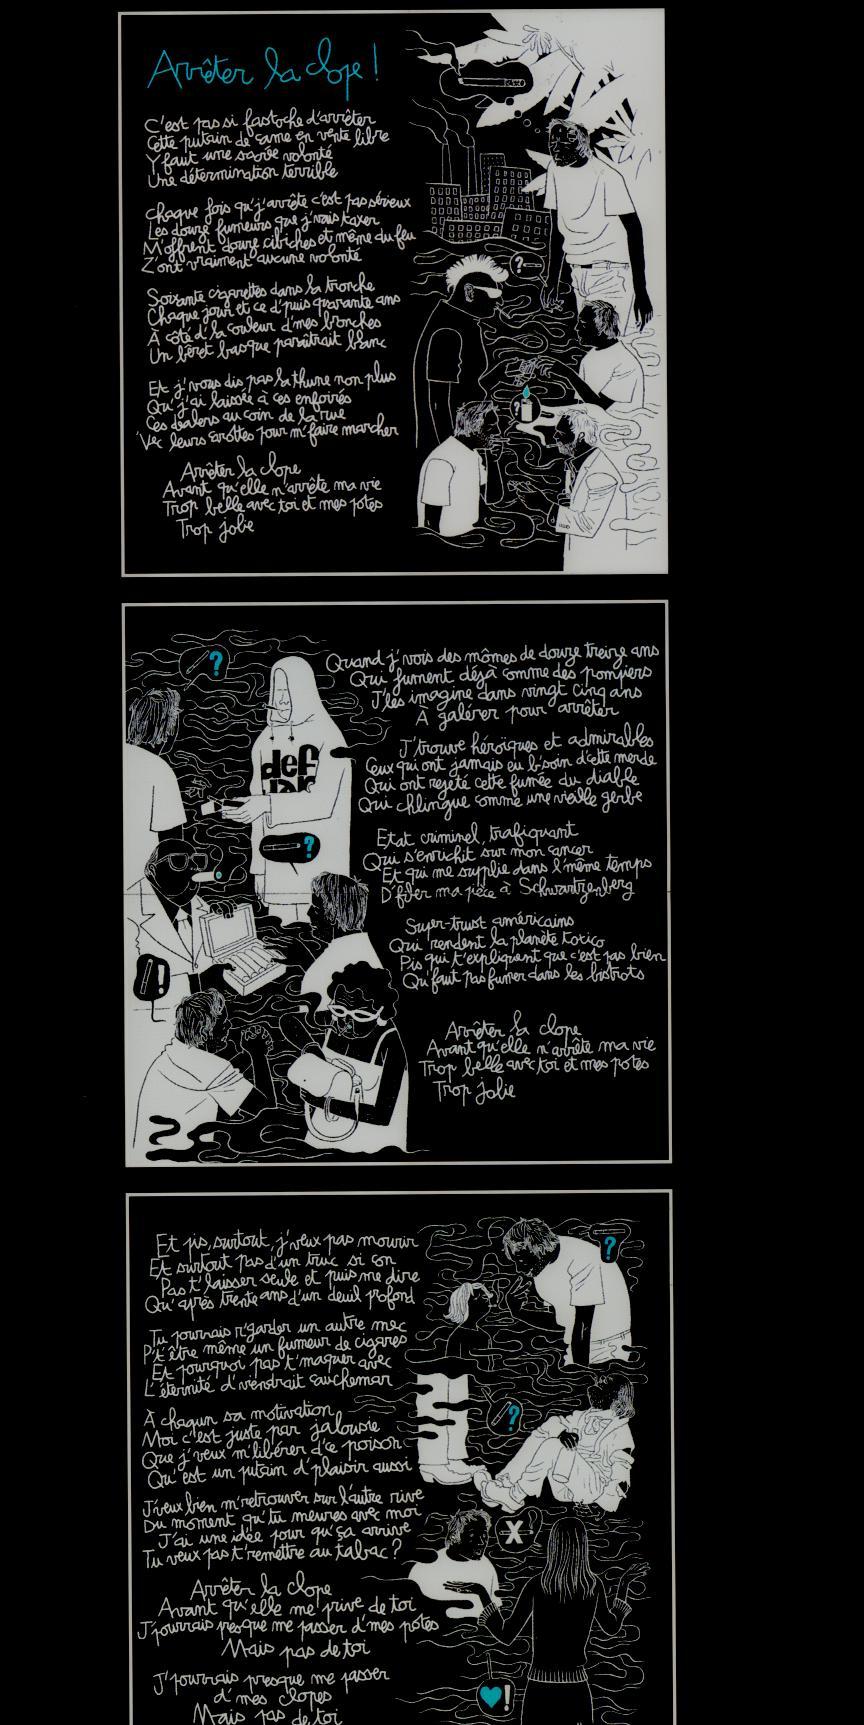 Arrêter la clope !
C'est pas si fastoche d'arrêter
Cette putain de came en vente libre
Y faut une sacrée volonté
Une détermination terrible
Chaque fois qu'j'arrête c'est pas sérieux
Les douze fumeurs que j'vais taxer
M'offrent douze cibiches et même du feu
Z'ont vraiment aucune volonté
Soixante cigarettes dans la tronche
Chaque jour et ce d'puis quarante ans
À côté d'la couleur d'mes bronches
Un béret basque paraîtrait blanc
Et j'vous dis pas la thune non plus
Qu'j'ai laissée à ces enfoirés
Ces dealers au coin de la rue
'Vec leurs carottes pour m'faire marcher
Arrêter la clope
Avant qu'elle n'arrête ma vie
Trop belle avec toi et mes potes
Trop jolie
?
?
?
def
?
Quand j'vois des mômes de douze treize ans
Qui fument déjà comme des pompiers
J'les imagine dans vingt cinq ans
À galérer pour arrêter
J'trouve héroïques et admirables
Ceux qui ont jamais eu b'soin d'cette merde
Qui ont rejeté cette fumée du diable
Qui chlingue comme une vieille gerbe
Etat criminel, trafiquant
Qui s'enrichit sur mon cancer
Et qui me supplie dans l'même temps
D'filer ma pièce à Schwartzenberg
Super-trust américains
Qui rendent la planète toxico
Pis qui t'expliquent que c'est pas bien
Qu'faut pas fumer dans les bistrots
Arrêter la clope
Avant qu'elle n'arrête ma vie
Trop belle avec toi et mes potes
Trop jolie
!
Et pis, surtout, j'veux pas mourir
Et surtout pas d'un truc si con
Pas t'laisser seule et puis me dire
Qu'après trente ans d'un deuil profond
Tu pourrais r'garder un autre mec
P't'être même un fumeur de cigares
Et pourquoi pas t'maquer avec
L'éternité d'viendrait cauchemar
À chaqun sa motivation
Moi c'est juste par jalousie
Que j'veux m'libérer d'ce poison
Qu'est un putain d'plaisir aussi
J'veux bien m'retrouver sur l'autre rive
Du moment qu'tu meures avec moi
J'ai une idée pour qu'ça arrive
Tu veux pas t'remettre au tabac ?
Arrêter la clope
Avant qu'elle me prive de toi
J'pourrais presque me passer d'mes potes
Mais pas de toi
J'pourrais presque me passer
d'mes clopes
Mais pas de toi
?
?
X
!